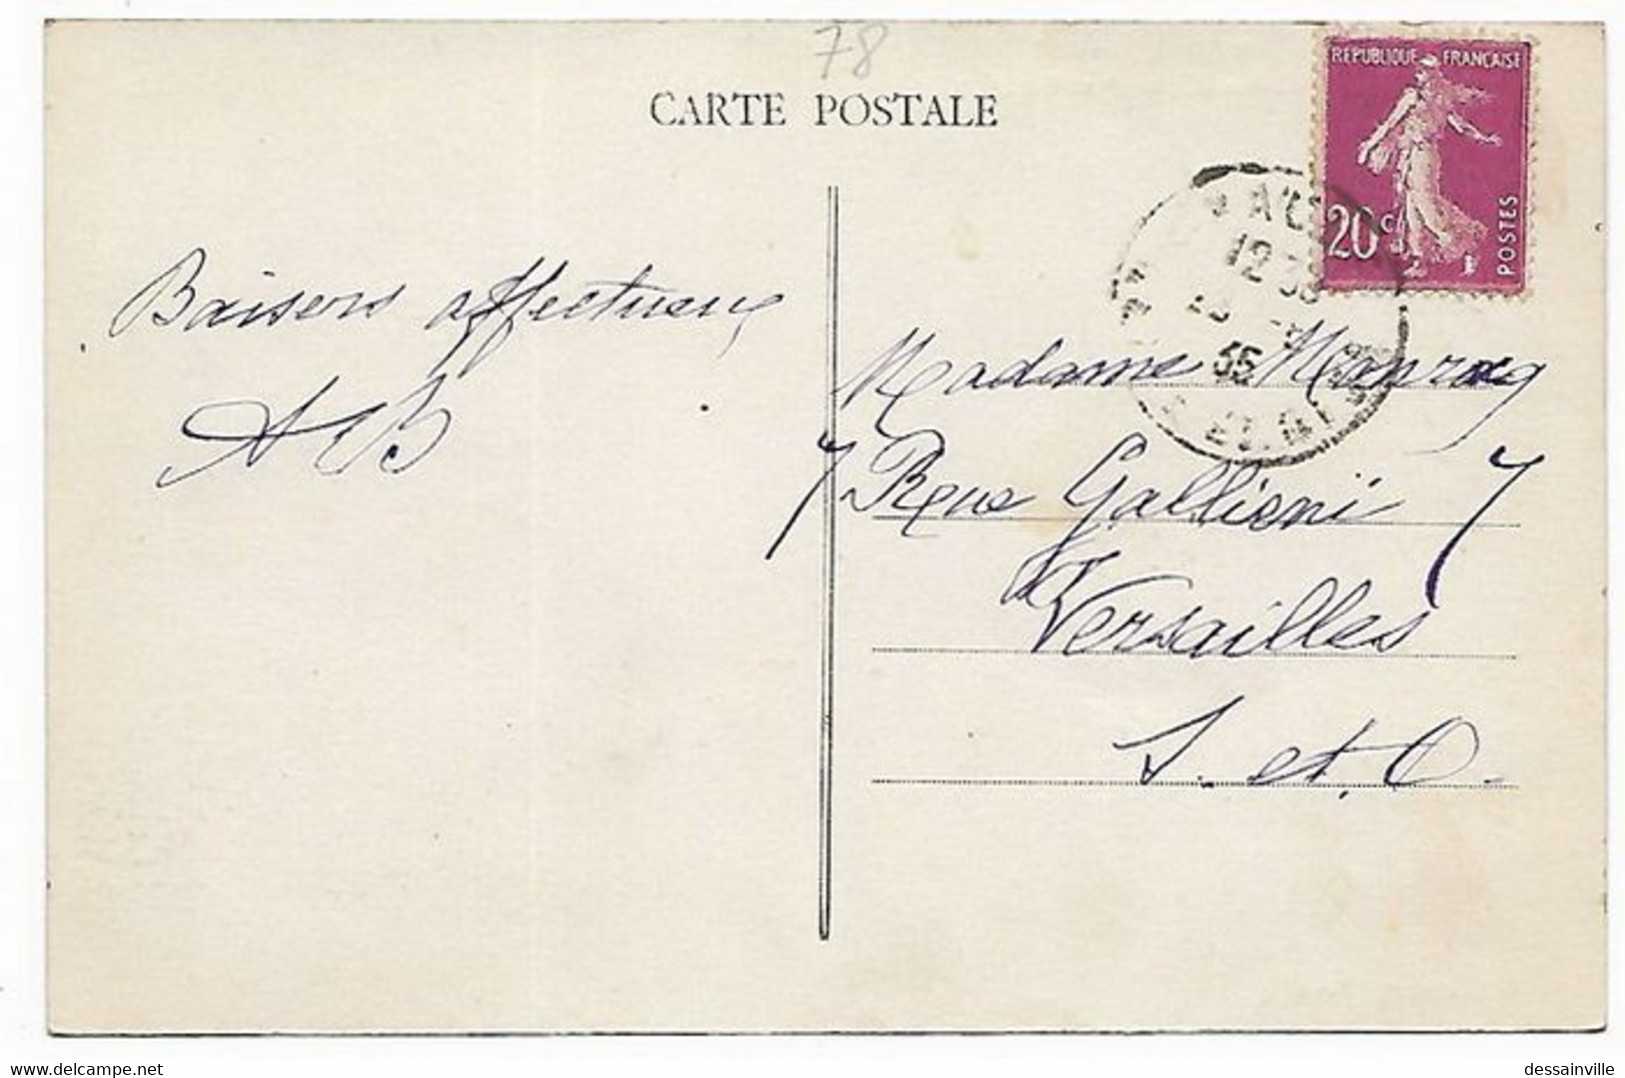 78
CARTE POSTALE
REPUBLIQUE FRANÇAISE
20c
POSTES
12 35
35
Baisers affectueux
AB
Madame
7 Rue Galliéni 7
Versailles
S. et. O.
dessainville